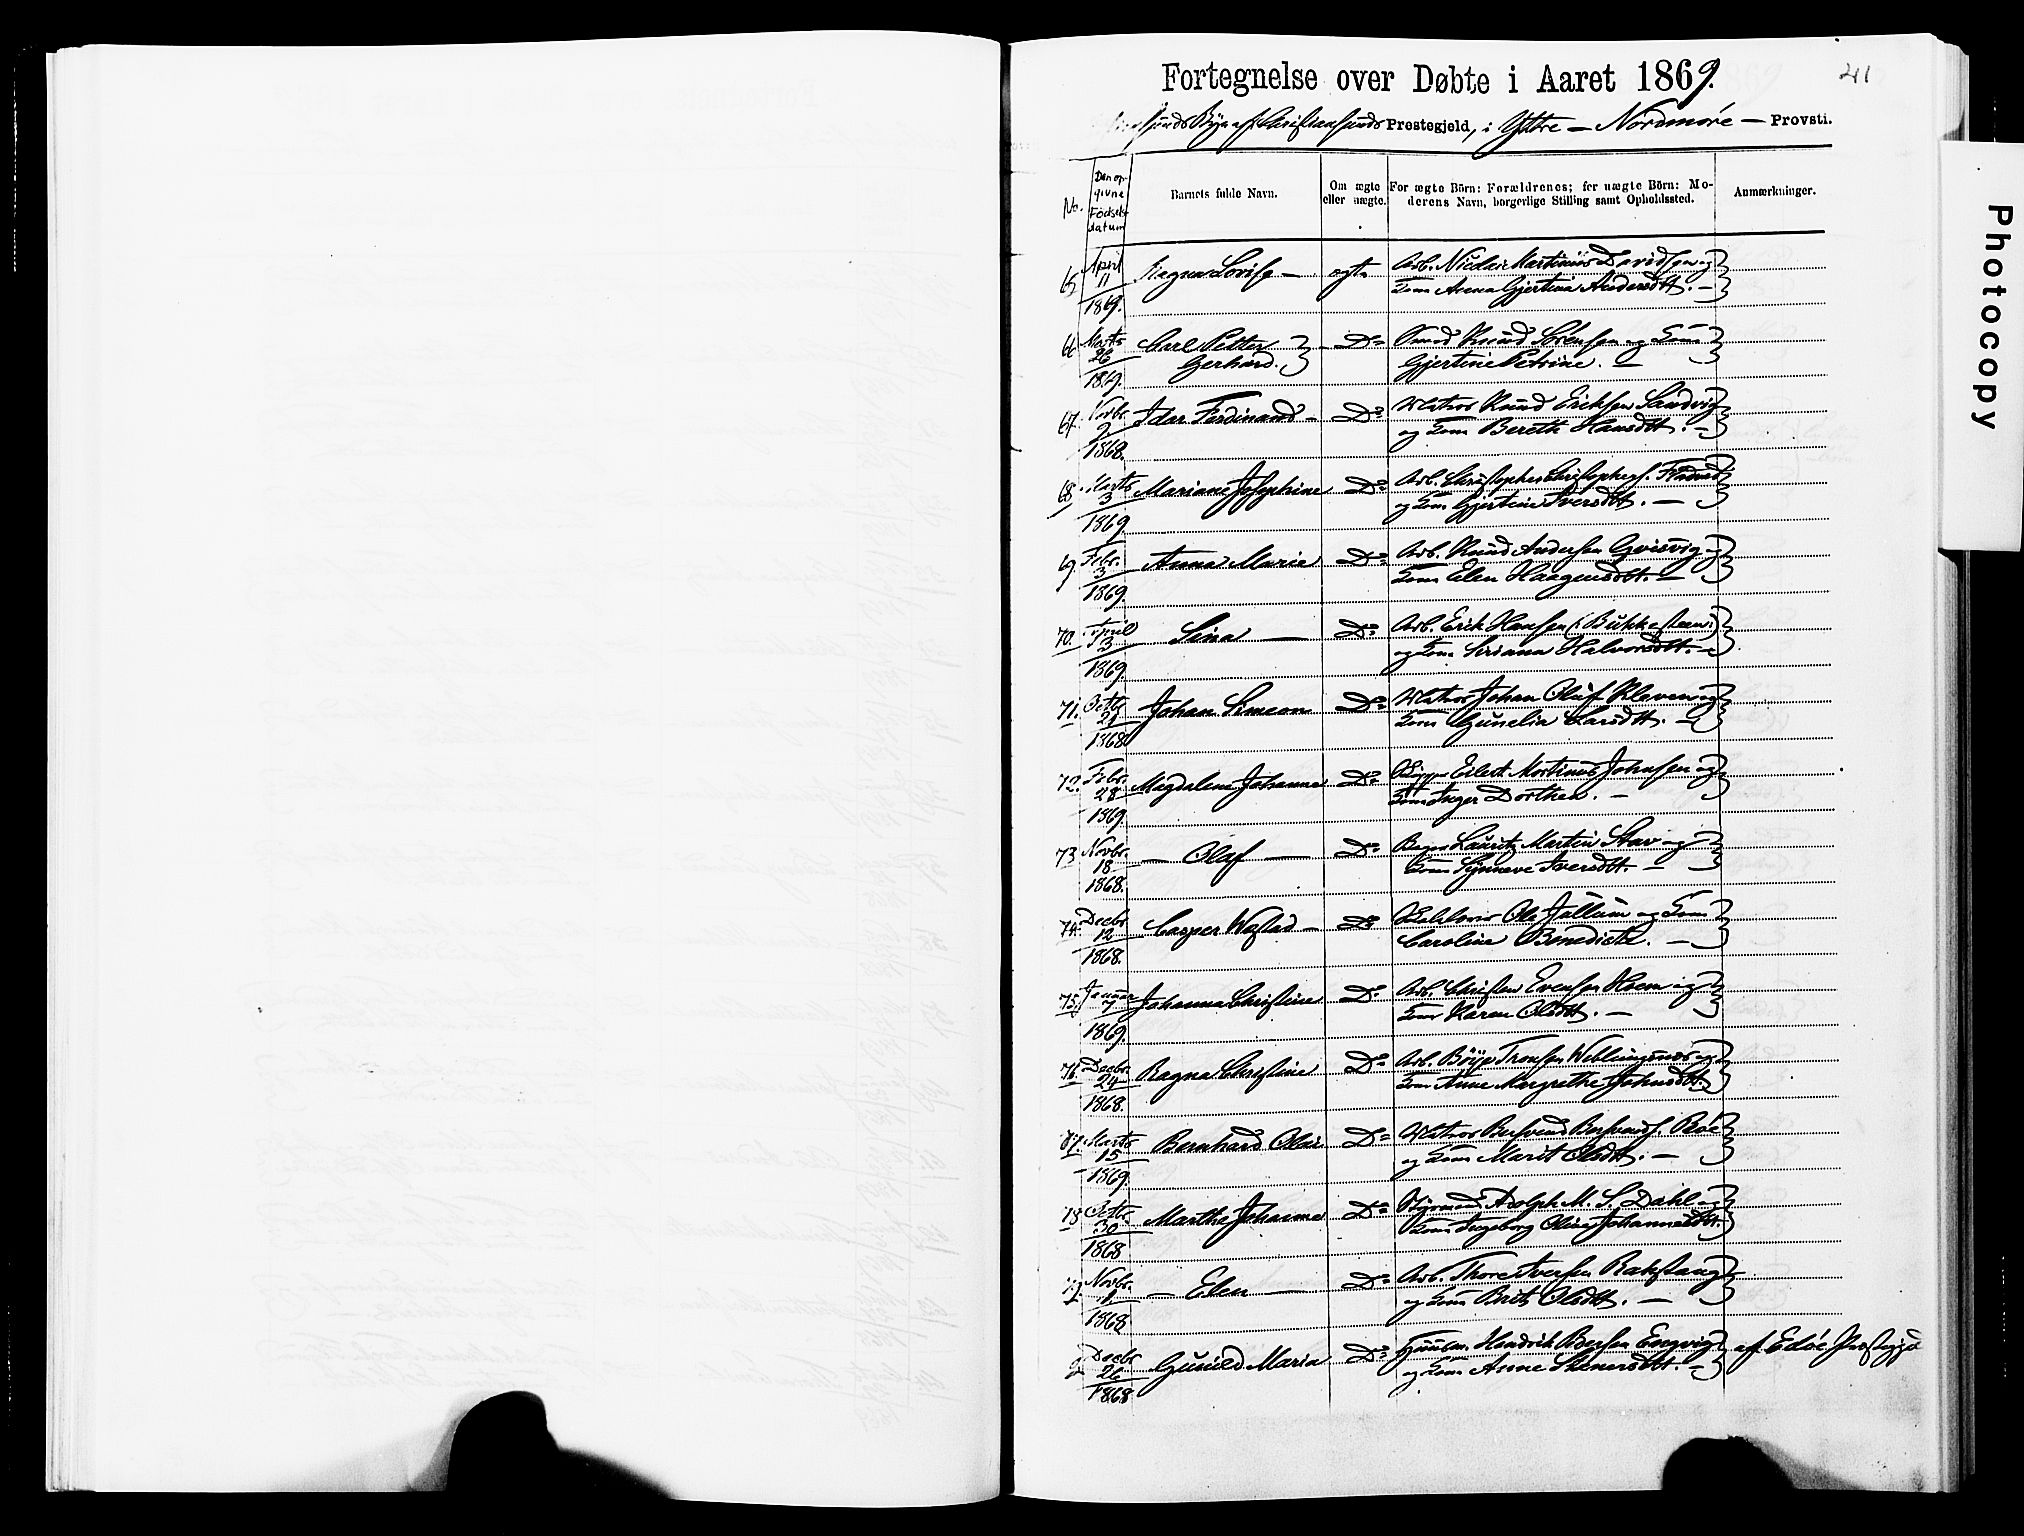 Fortegnelse over Døbte i Aaret 1869.
41
Byen af Christiansunds Prestegjeld, i Ytre — Nordmöre — Provsti.
No.
Den op-
givne
Födsels-
datum
Barnets fulde Navn.
Om ægte
eller uægte.
For ægte Börn: Forældrenes; for uægte Börn: Mo-
derens Navn, borgerlige Stilling samt Opholdssted.
Anmærkninger.
65 April 11 1869. Ragna Lovise — ægte Arb. Nicolai Martinius Davidsen og
Anna Gjertina Andersdtt. —
66 Marts 26 1869. Carl Petter Gerhard. Do Knud Sörensen og
Gjertine Petrine. —
67. Novbr. 2 1868. Idar Ferdinand — Do Matros Knud Eriksen Sandvig
og Bereth Hansdtt. —
68 Marts 3 1869 Mariane Josephine Do Arb. Christopher Christophers.
og Gjertine Iversdtt. —
69. Febr. 3 1869. Anna Marie Do Arb. Knud Andersen Gvisvig og
Elen Haagensdtt. —
70. April 3 1869. Sina — Do Arb. Erik Hansen (i Bukkesteen)
og Seriana Halvorsdtt. —
71. Octbr 21 1868 Johan Simeon Do Matros Johan Oluf Kleven og
Gunelia Larsdtt. —
72. Febr. 28 1869. Magdalene Johanna Do Skipper Eilert Mortinus Johnsen og
Inger Dorthea. —
73 Novbr. 18 1868. — Olaf — Do Lauritz Martin Stav og
Synneve Iversdtt. —
74. Decbr 12 1868. Casper Wastad — Do Ole Jullum og
Caroline Benedicte. —
75. Januar 7 1869. Johanna Christine Do Arb. Christen Evensen Hoem og
Karen Olsdtt. —
76. Decbr. 24 1868. Ragna Christine Do Arb. Böije Tronsen Weblungsnes og
Anne Margrethe Johnsdtt.
77. Marts 15 1869 Bernhard Olai Do Matros Bersvend Bersvends. Röe
og Marit Olsdtt. —
78 Octbr. 30 1868 Marthe Johanna Do Styrmand Adolph M. S. Dahl og
Ingeborg Oline Johannesdtt.
79. Novbr. 1 1868 — Elen — Do Arb. Thore Iversen Rakstang
og Brit Olsdtt. —
Decbr 26 1868 Gunild Maria Do Hendrik Engvig
og Anne Stenersdtt. — af Edöe Prestegjd
Photocopy